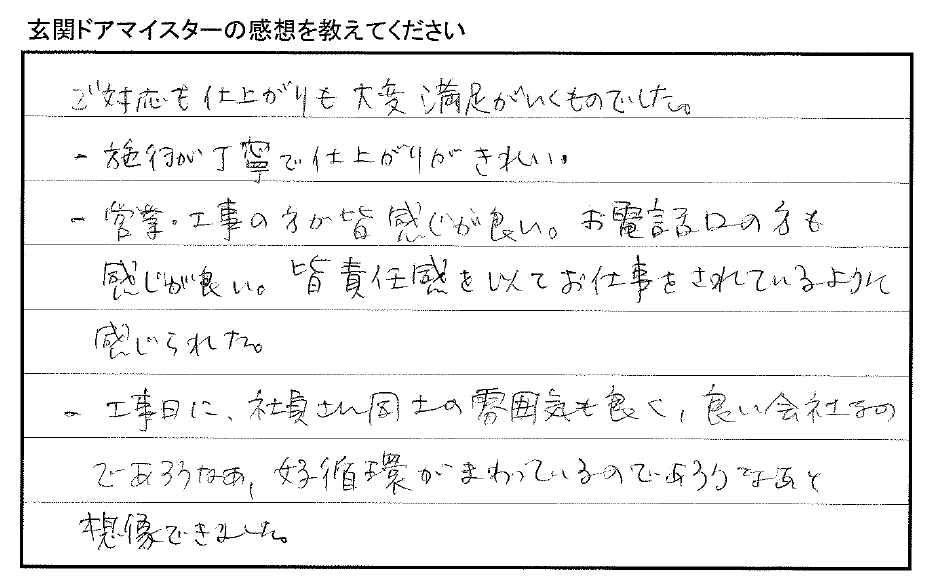 玄関ドアマイスターの感想を教えてください
ご対応も仕上がりも大変満足がいくものでした。
- 施行が丁寧で仕上がりがきれい。
- 営業・工事の方が皆感じが良い。お電話口の方も
感じが良い。皆責任感を以てお仕事をされているように
感じられた。
- 工事日に、社員さん同士の雰囲気も良く、良い会社なの
であろうなあ、好循環がまわっているのであろうなあと
想像できました。